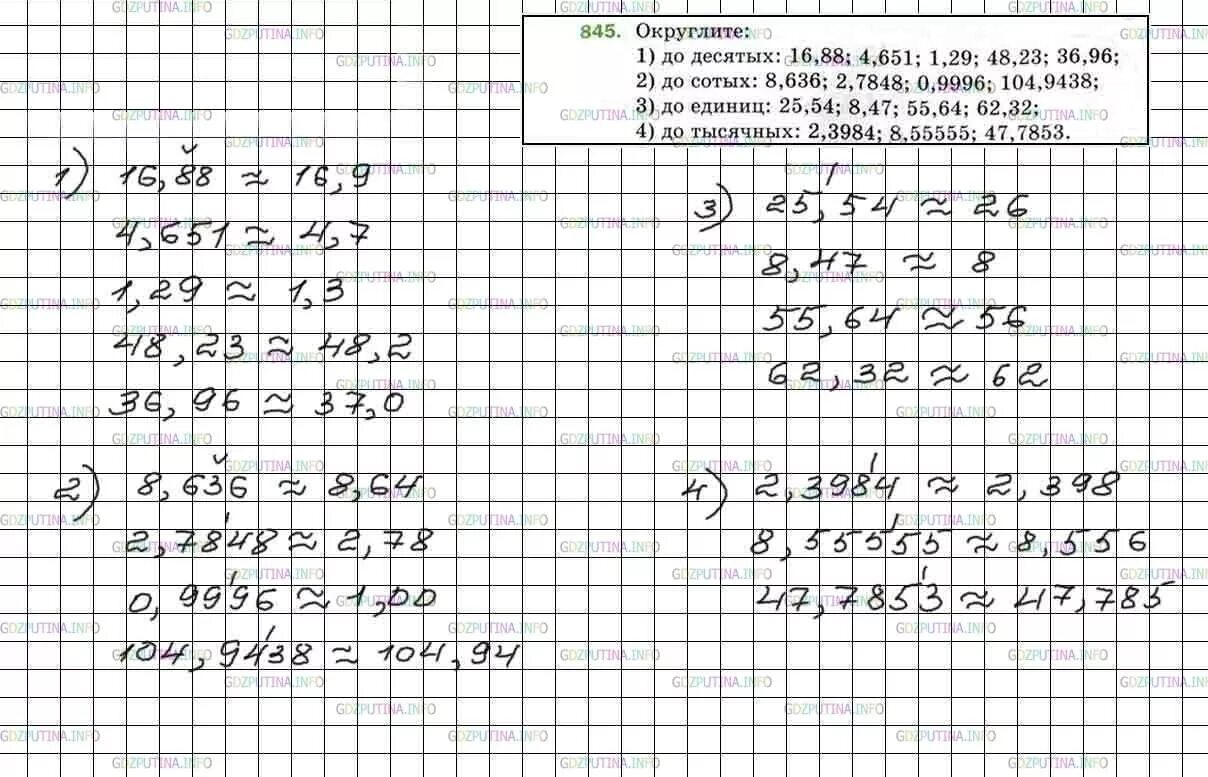 845. Округлите:
1) до десятых: 16,88; 4,651; 1,29; 48,23; 36,96;
2) до сотых: 8,636; 2,7848; 0,9996; 104,9438;
3) до единиц: 25,54; 8,47; 55,64; 62,32;
4) до тысячных: 2,3984; 8,55555; 47,7853.
1) 16,88 ≈ 16,9
4,651 ≈ 4,7
1,29 ≈ 1,3
48,23 ≈ 48,2
36,96 ≈ 37,0
2) 8,636 ≈ 8,64
2,7848 ≈ 2,78
0,9996 ≈ 1,00
104,9438 ≈ 104,94
3) 25,54 ≈ 26
8,47 ≈ 8
55,64 ≈ 56
62,32 ≈ 62
4) 2,3984 ≈ 2,398
8,55555 ≈ 8,556
47,7853 ≈ 47,785
GDZPUTINA.INFO